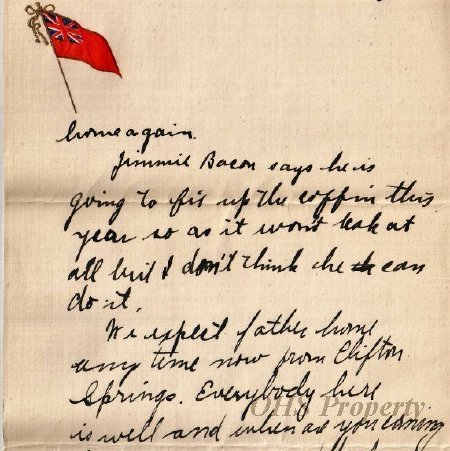 home again.
Jimmie Bacon says he is
going to fix up the coffin this
year so as it won't leak at
all but I don't think he can
do it.
We expect father home
any time now from Clifton
Springs. Everybody here
OHS Property
is well and when are you coming